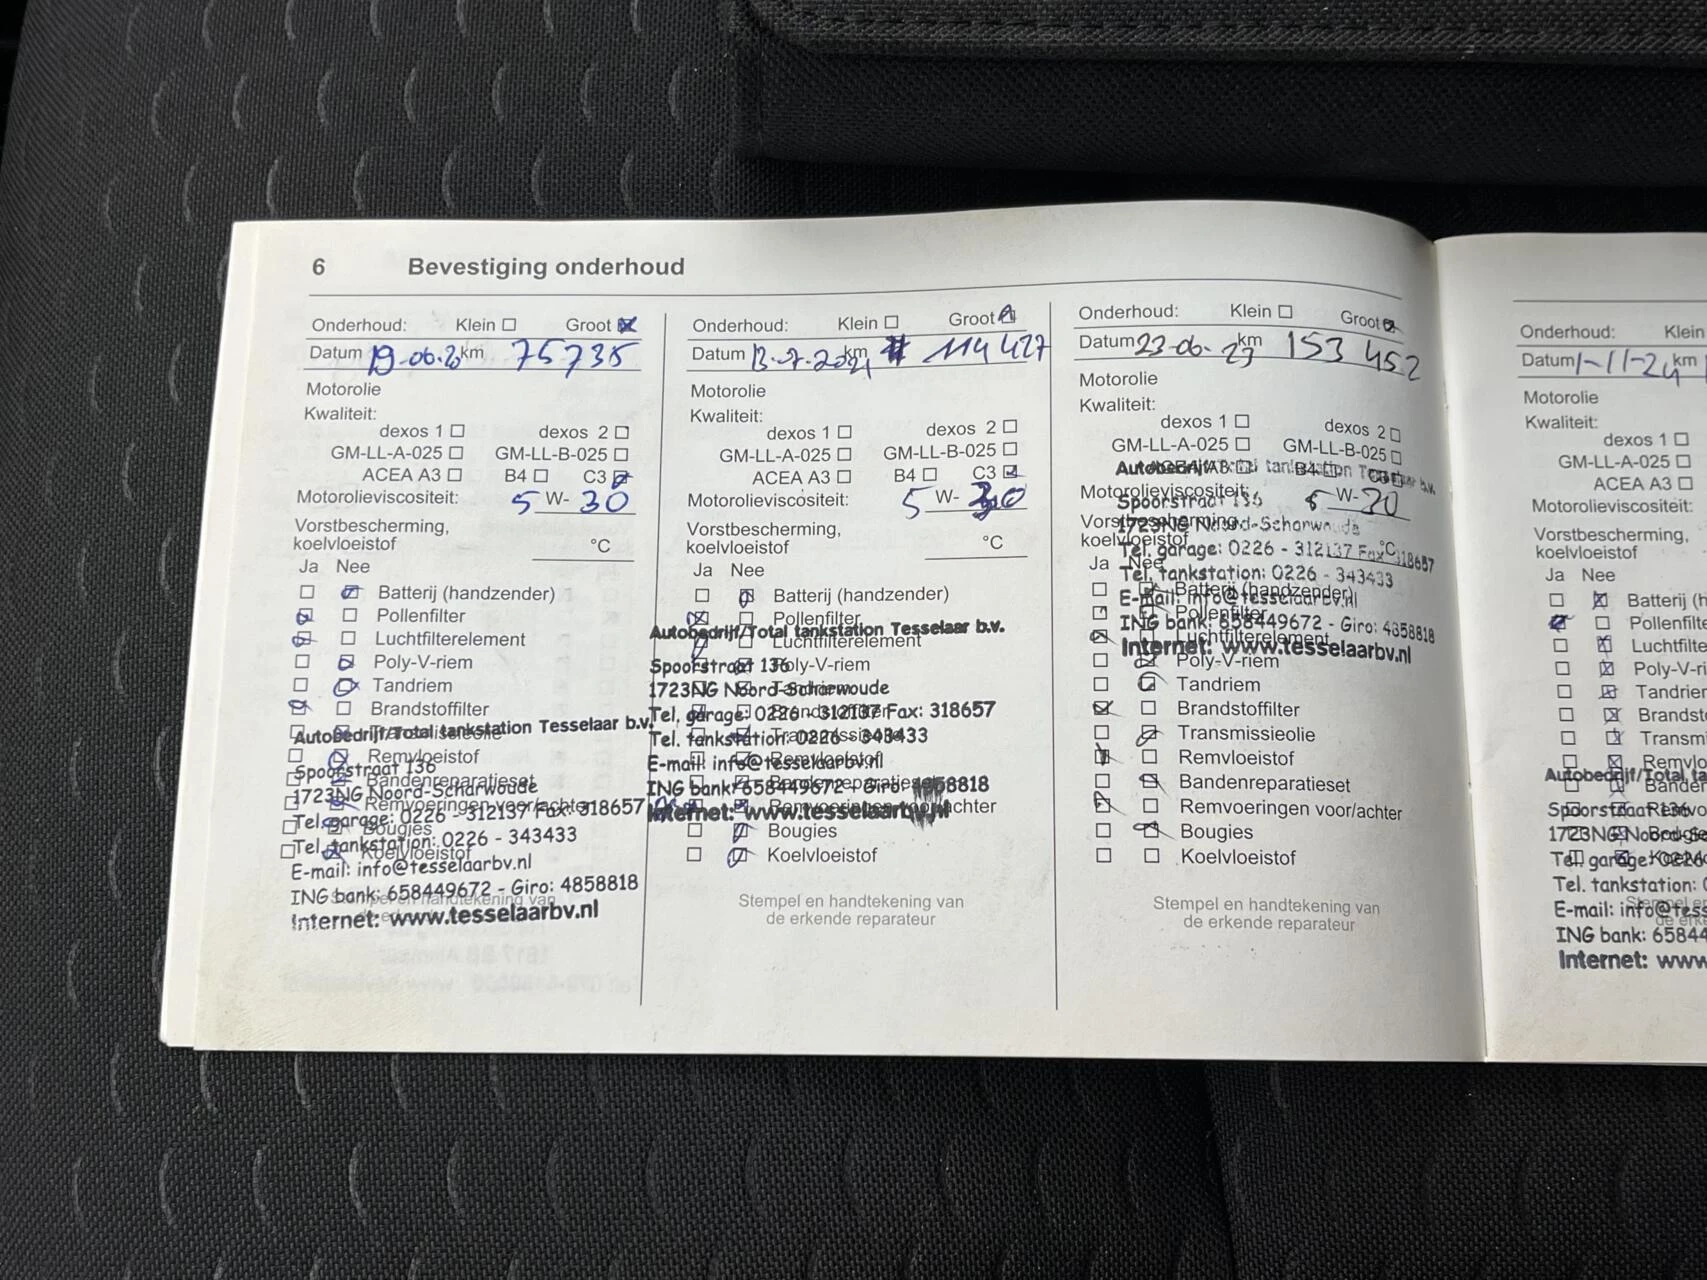 6 Bevestiging onderhoud
Onderhoud: Klein Groot
Datum 19-06-20 km 75735
Motorolie
Kwaliteit:
dexos 1 dexos 2
GM-LL-A-025 GM-LL-B-025
ACEA A3 B4 C3
Motorolieviscositeit: 5 W- 30
Vorstbescherming,
koelvloeistof °C
Ja Nee
Batterij (handzender)
Pollenfilter
Luchtfilterelement
Poly-V-riem
Tandriem
Brandstoffilter
Autobedrijf/Total tankstation Tesselaar b.v.
Transmissieolie
Remvloeistof
Spoorstraat 136
Bandenreparatieset
1723NG Noord-Scharwoude
Remvoeringen voor/achter
Tel. garage: 0226 - 312137 Fax: 318657
Bougies
Tel. tankstation: 0226 - 343433
Koelvloeistof
E-mail: info@tesselaarbv.nl
ING bank: 658449672 - Giro: 4858818
Stempel en handtekening van
de erkende
Internet: www.tesselaarbv.nl
Onderhoud: Klein Groot
Datum 13-7-2021 km 114427
Motorolie
Kwaliteit:
dexos 1 dexos 2
GM-LL-A-025 GM-LL-B-025
ACEA A3 B4 C3
Motorolieviscositeit: 5 W- 30
Vorstbescherming,
koelvloeistof °C
Ja Nee
Batterij (handzender)
Pollenfilter
Autobedrijf/Total tankstation Tesselaar b.v.
Luchtfilterelement
Spoorstraat 136
Poly-V-riem
1723NG Noord-Scharwoude
Tandriem
Tel. garage: 0226 - 312137 Fax: 318657
Brandstoffilter
Tel. tankstation: 0226 - 343433
Transmissieolie
E-mail: info@tesselaarbv.nl
Remvloeistof
ING bank: 658449672 - Giro: 4858818
Bandenreparatieset
Internet: www.tesselaarbv.nl
Remvoeringen voor/achter
Bougies
Koelvloeistof
Stempel en handtekening van
de erkende reparateur
Onderhoud: Klein Groot
Datum 23-06-23 km 153452
Motorolie
Kwaliteit:
dexos 1 dexos 2
GM-LL-A-025 GM-LL-B-025
Autobedrijf/Total tankstation
ACEA A3 B4 C3
Motorolieviscositeit: 5 W- 30
Spoorstraat 136
Vorstbescherming,
1723NG Noord-Scharwoude
koelvloeistof °C
Tel. garage: 0226 - 312137 Fax: 318657
Ja Nee
Tel. tankstation: 0226 - 343433
Batterij (handzender)
E-mail: info@tesselaarbv.nl
Pollenfilter
ING bank: 658449672 - Giro: 4858818
Luchtfilterelement
Internet: www.tesselaarbv.nl
Poly-V-riem
Tandriem
Brandstoffilter
Transmissieolie
Remvloeistof
Bandenreparatieset
Remvoeringen voor/achter
Bougies
Koelvloeistof
Stempel en handtekening van
de erkende reparateur
Onderhoud: Klein
Datum 1-11-24 km
Motorolie
Kwaliteit:
dexos 1
GM-LL-A-025
ACEA A3
Motorolieviscositeit:
Vorstbescherming,
koelvloeistof
Ja Nee
Batterij (h
Pollenfilte
Luchtfilte
Poly-V-ri
Tandrien
Brandst
Transmi
Remvlo
Autobedrijf/Total ta
Banden
Spoorstraat 136
Remvo
1723NG Noord-Sc
Bougie
Tel. garage: 0226
Koelv
Tel. tankstation:
E-mail: info@tess
ING bank: 6584
Internet: www